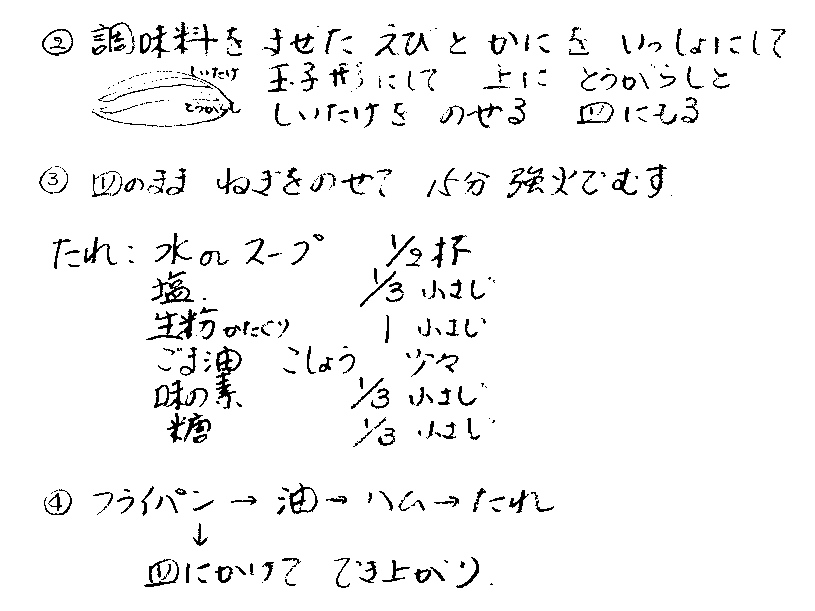 ② 調味料を ませた えびと かにを いっしょにして
しいたけ 玉子形にして 上に とうがらしと
とうがらし しいたけを のせる 皿にもる
③ 皿のまま ねぎをのせて 15分 強火でむす
たれ: 水orスープ 1/2杯
塩. 1/3 小さじ
生粉かたくり 1 小さじ
ごま油 こしょう 少々
味の素 1/3 小さじ
糖 1/3 小さじ
④ フライパン → 油 → ハム → たれ
↓
皿にかけて でき上がり.